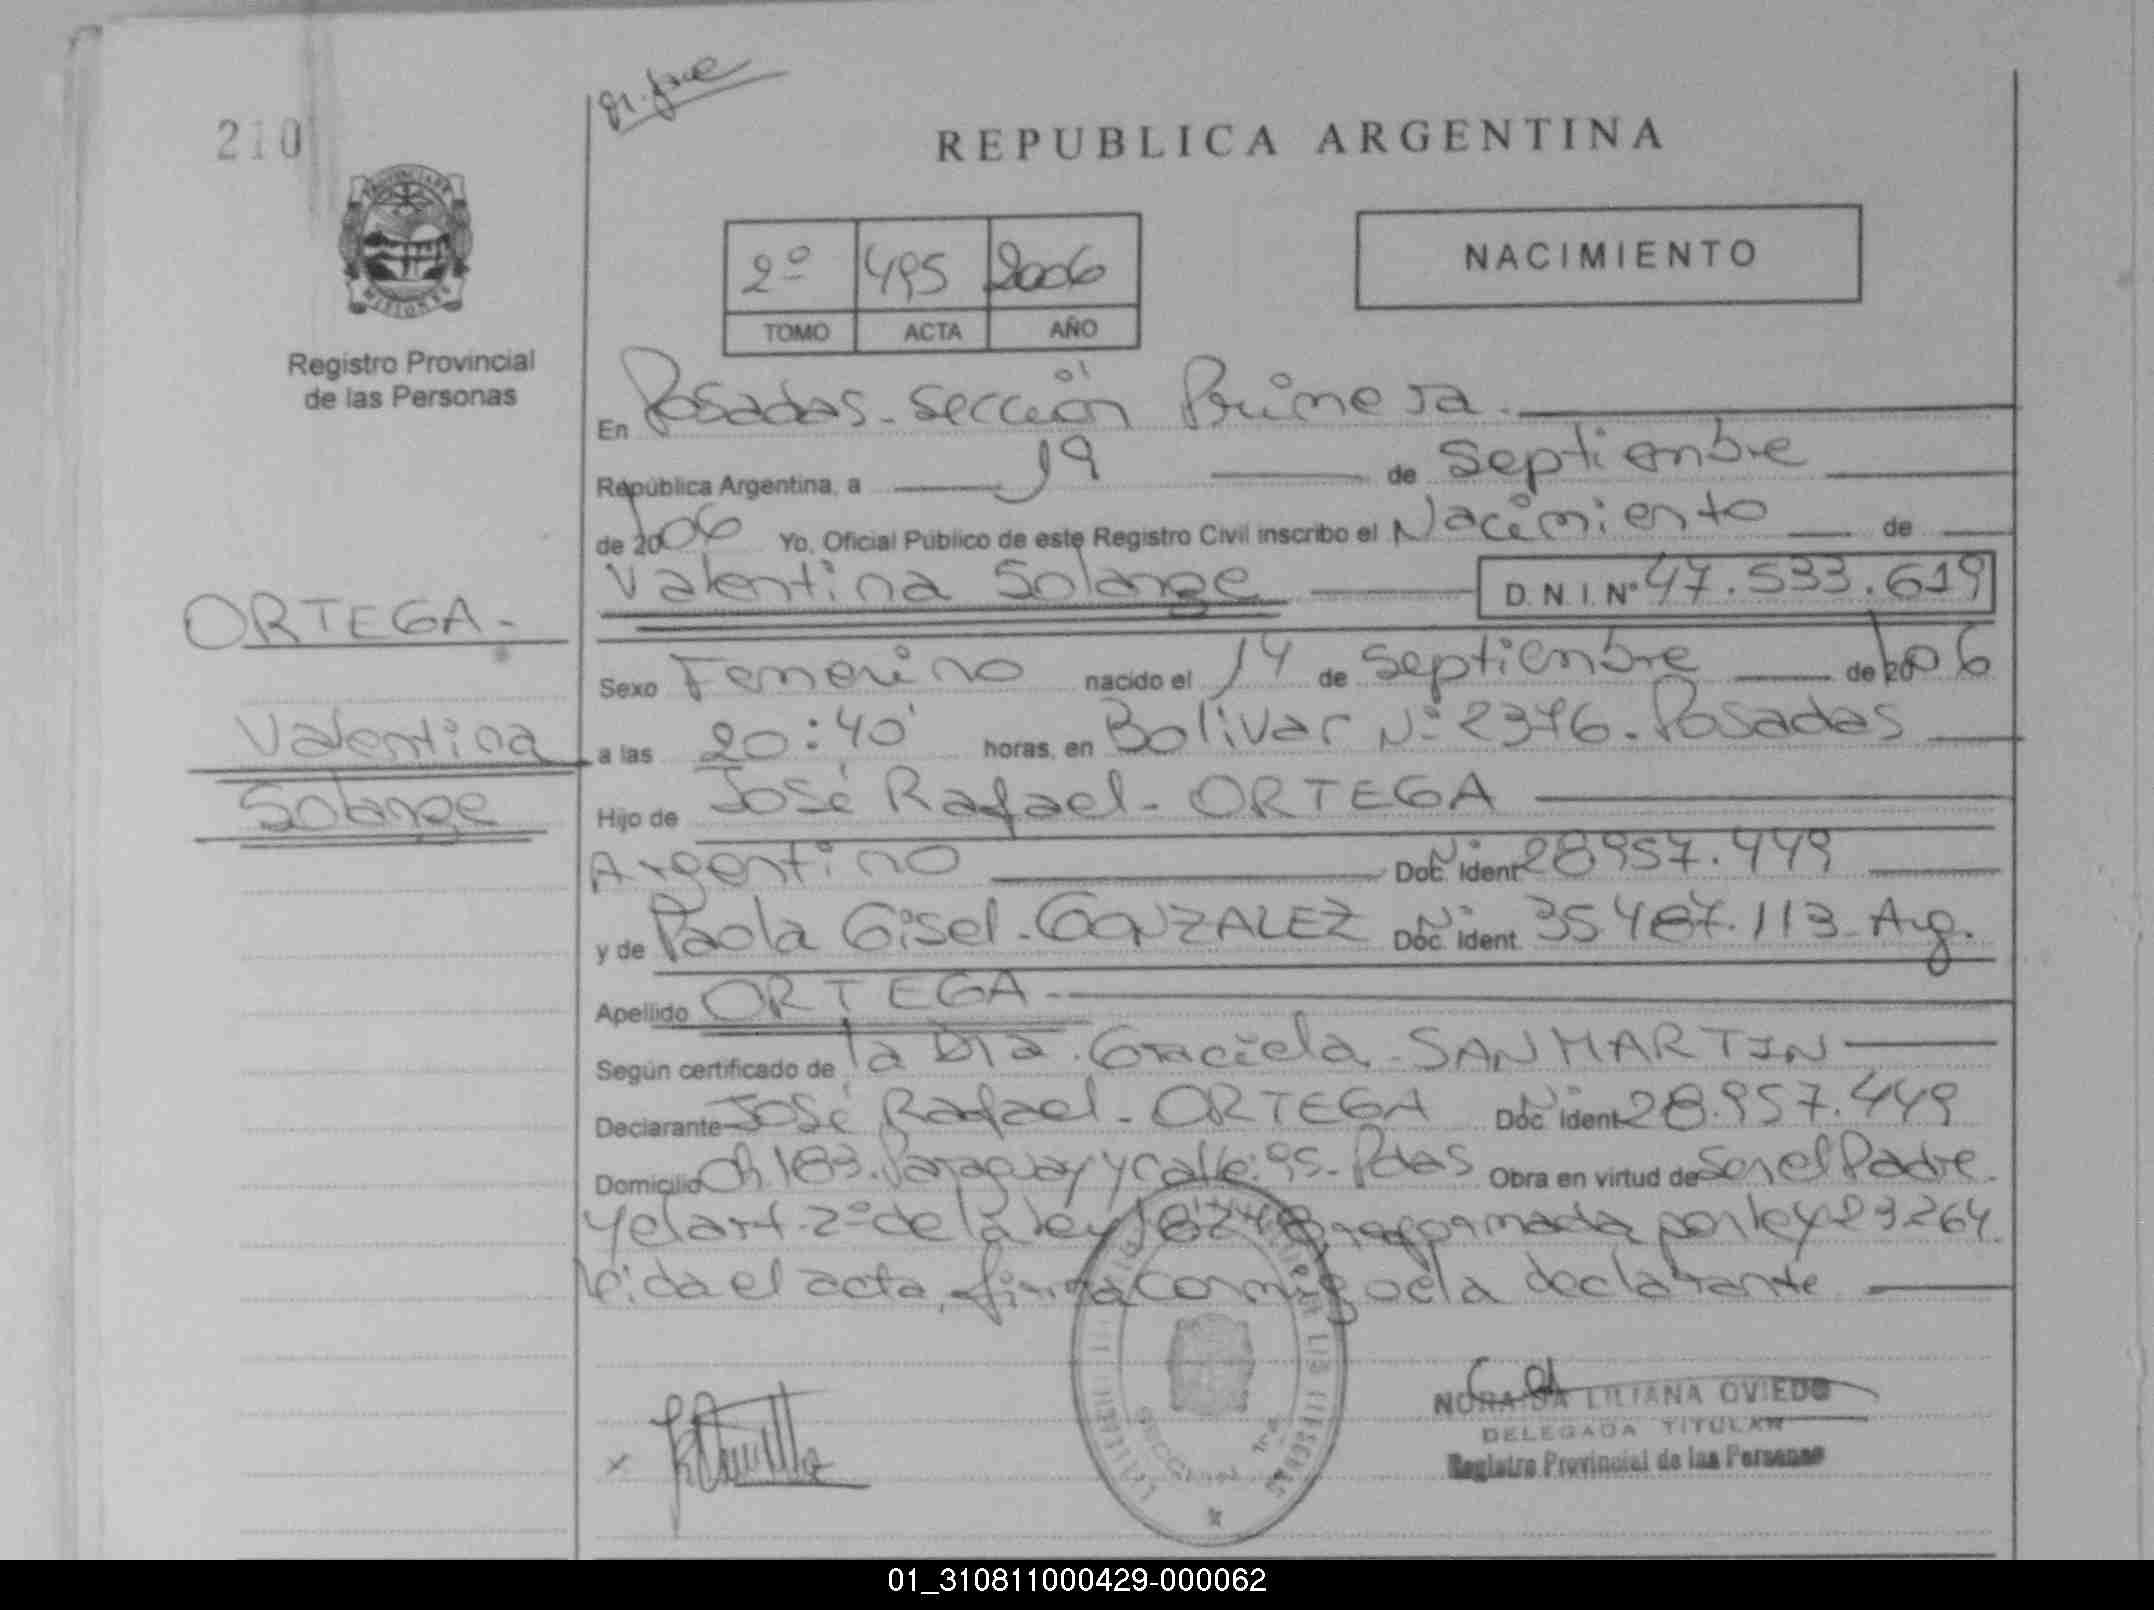 210
REPUBLICA ARGENTINA
NACIMIENTO
2º 495 2006
TOMO ACTA AÑO
Registro Provincial
de las Personas
En Posadas - Sección Primera.
República Argentina, a 19 de Septiembre
de 2006 Yo, Oficial Público de este Registro Civil inscribo el Nacimiento de
Valentina Solange D.N.I. Nº 47.533.619
ORTEGA -
Valentina
Solange
Sexo Femenino nacido el 14 de Septiembre de 2006
a las 20:40' horas, en Bolivar Nº 2376. Posadas
Hijo de José Rafael - ORTEGA
Argentino Doc. Ident. Nº 28957.449
y de Paola Gisel - GONZALEZ Doc. Ident. Nº 35487.113 - Arg.
Apellido ORTEGA -
Según certificado de la Dra. Graciela - SANMARTIN
Declarante José Rafael - ORTEGA Doc. Ident. Nº 28.957.449
Domicilio Ch. 183. Paraguay y calle: 95 - Pdas Obra en virtud de Ser el Padre
y el art. 2º de la ley 18248 reformada por ley 23264
leida el acta, firma conmigo el/a declarante
SECCION 1ra
NORA LILIANA OVIEDO
DELEGADA TITULAR
Registro Provincial de las Personas
01_310811000429-000062